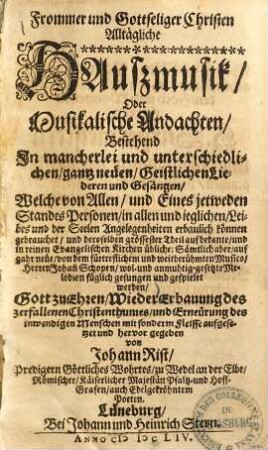 Frommer und Gottseliger Christen
Alltägliche
HAuszmusik/
Oder
Musikalische Andachten/
Bestehend
In mancherlei und unterschiedli-
chen/gantz neüen/Geistlichen Lie-
deren und Gesängen/
Welche von Allen/und Eines jetweden
Standes Personen/in allen und ieglichen/Lei-
bes und der Seelen Angelegenheiten erbaulich können
gebrauchet/und deroselben grössester Theil auf bekante/und
in reinen Evangelischen Kirchen übliche: Sämtlich aber/auf
gahr neüe/von dem fürtreflichem und weitberühmten Musico/
Herren Johan Schopen/wol-und anmuhtig-gesetzte Me-
lodien füglich gesungen und gespielet
werden/
Gott zu Ehren/Wieder Erbauung des
zerfallenen Christenthumes/und Erneürung des
inwendigen Menschen mit sonderm Fleisse aufgese-
tzet und hervor gegeben
von
Johann Rist/
Predigern Göttliches Wohrtes/zu Wedel an der Elbe/
Römischer/Käiserlicher Majestät Pfaltz-und Hoff-
Grafen/auch Edelgekröhntem
Poeten.
Lüneburg/
Bei Johann und Heinrich Stern.
ANNO CIↃ IↃC LIV.